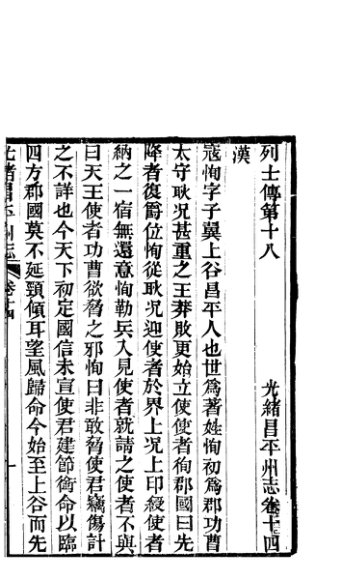 列士傳第十八 光緒昌平州志卷十四
漢
寇恂字子翼上谷昌平人也世爲著姓恂初爲郡功曹
太守耿况甚重之王莽敗更始立使使者徇郡國曰先
降者復爵位恂從耿况迎使者於界上况上印綬使者
納之一宿無還意恂勒兵入見使者就請之使者不與
曰天王使者功曹欲脅之邪恂曰非敢脅使君竊傷計
之不詳也今天下初定國信未宣使君建節銜命以臨
四方郡國莫不延頸傾耳望風歸命今始至上谷而先
光緒昌平州志 卷十四 一